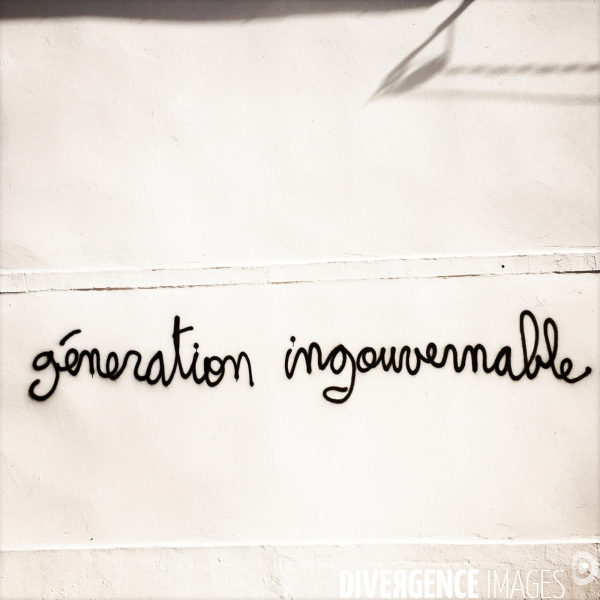 géneration ingouvernable
DIVERGENCE IMAGES